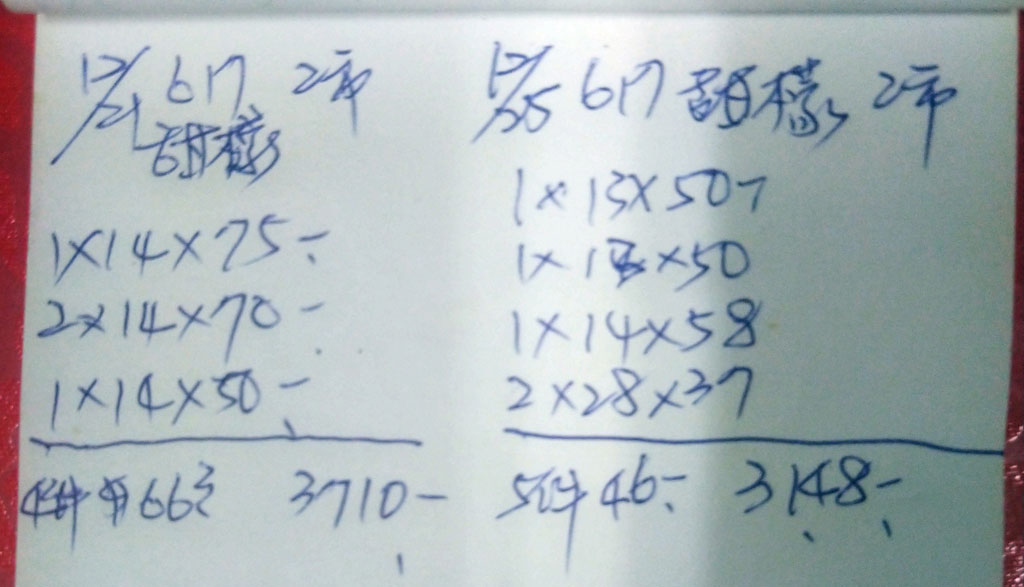 12/21 617 2市
甜檬
1×14×75-
2×14×70-
1×14×50-
4件 66 3710-
12/25 617 甜檬 2市
1×13×50-
1×13×50
1×14×58
2×28×37
5件 46- 3148-